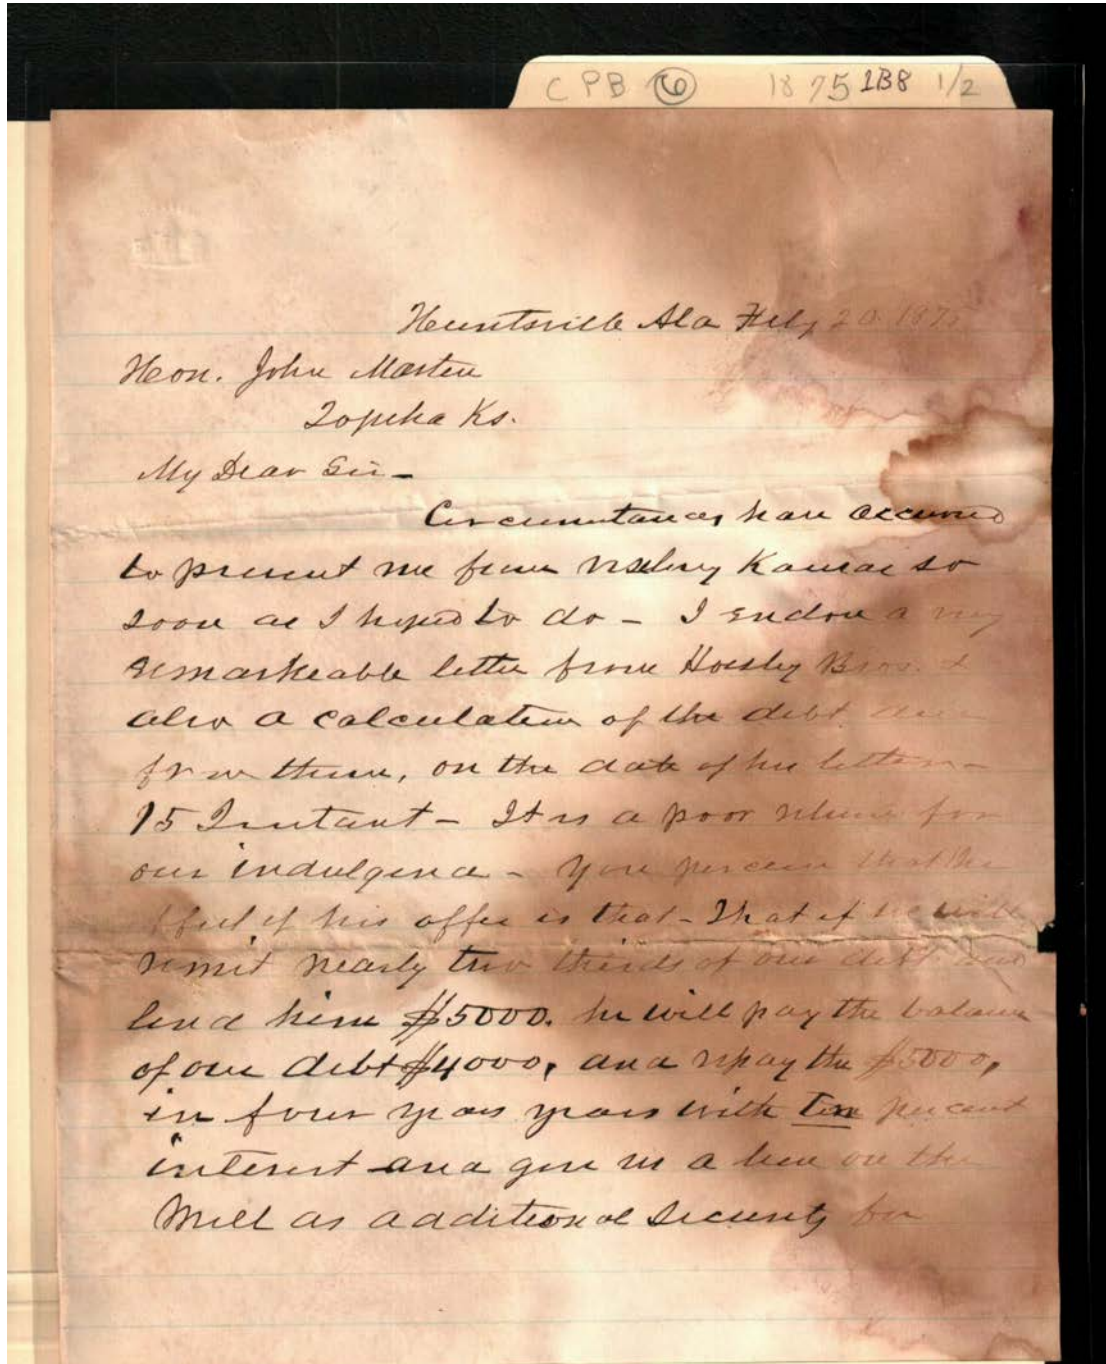 CPB 6 1875 1B8 1/2
Huntsville Ala Feby 20 187
Hon. John Martin
Topeka Ks.
My Dear Sir -
Circumstances have occurred
to prevent me from visiting Kansas so
soon as I hoped to do - I enclose a very
remarkeable letter from Bros. &
also a calculation of the debt due
from them, on the date of his letter -
15 Instant - It is a poor return for
our indulgence - You perceive that the
effect of his offer is that - That if we will
remit nearly two thirds of our debt and
lend him $5000. he will pay the balance
of our debt $4000, and repay the $5000,
in four years years with ten per cent
interest and give us a lien on the
Mill as additional security for